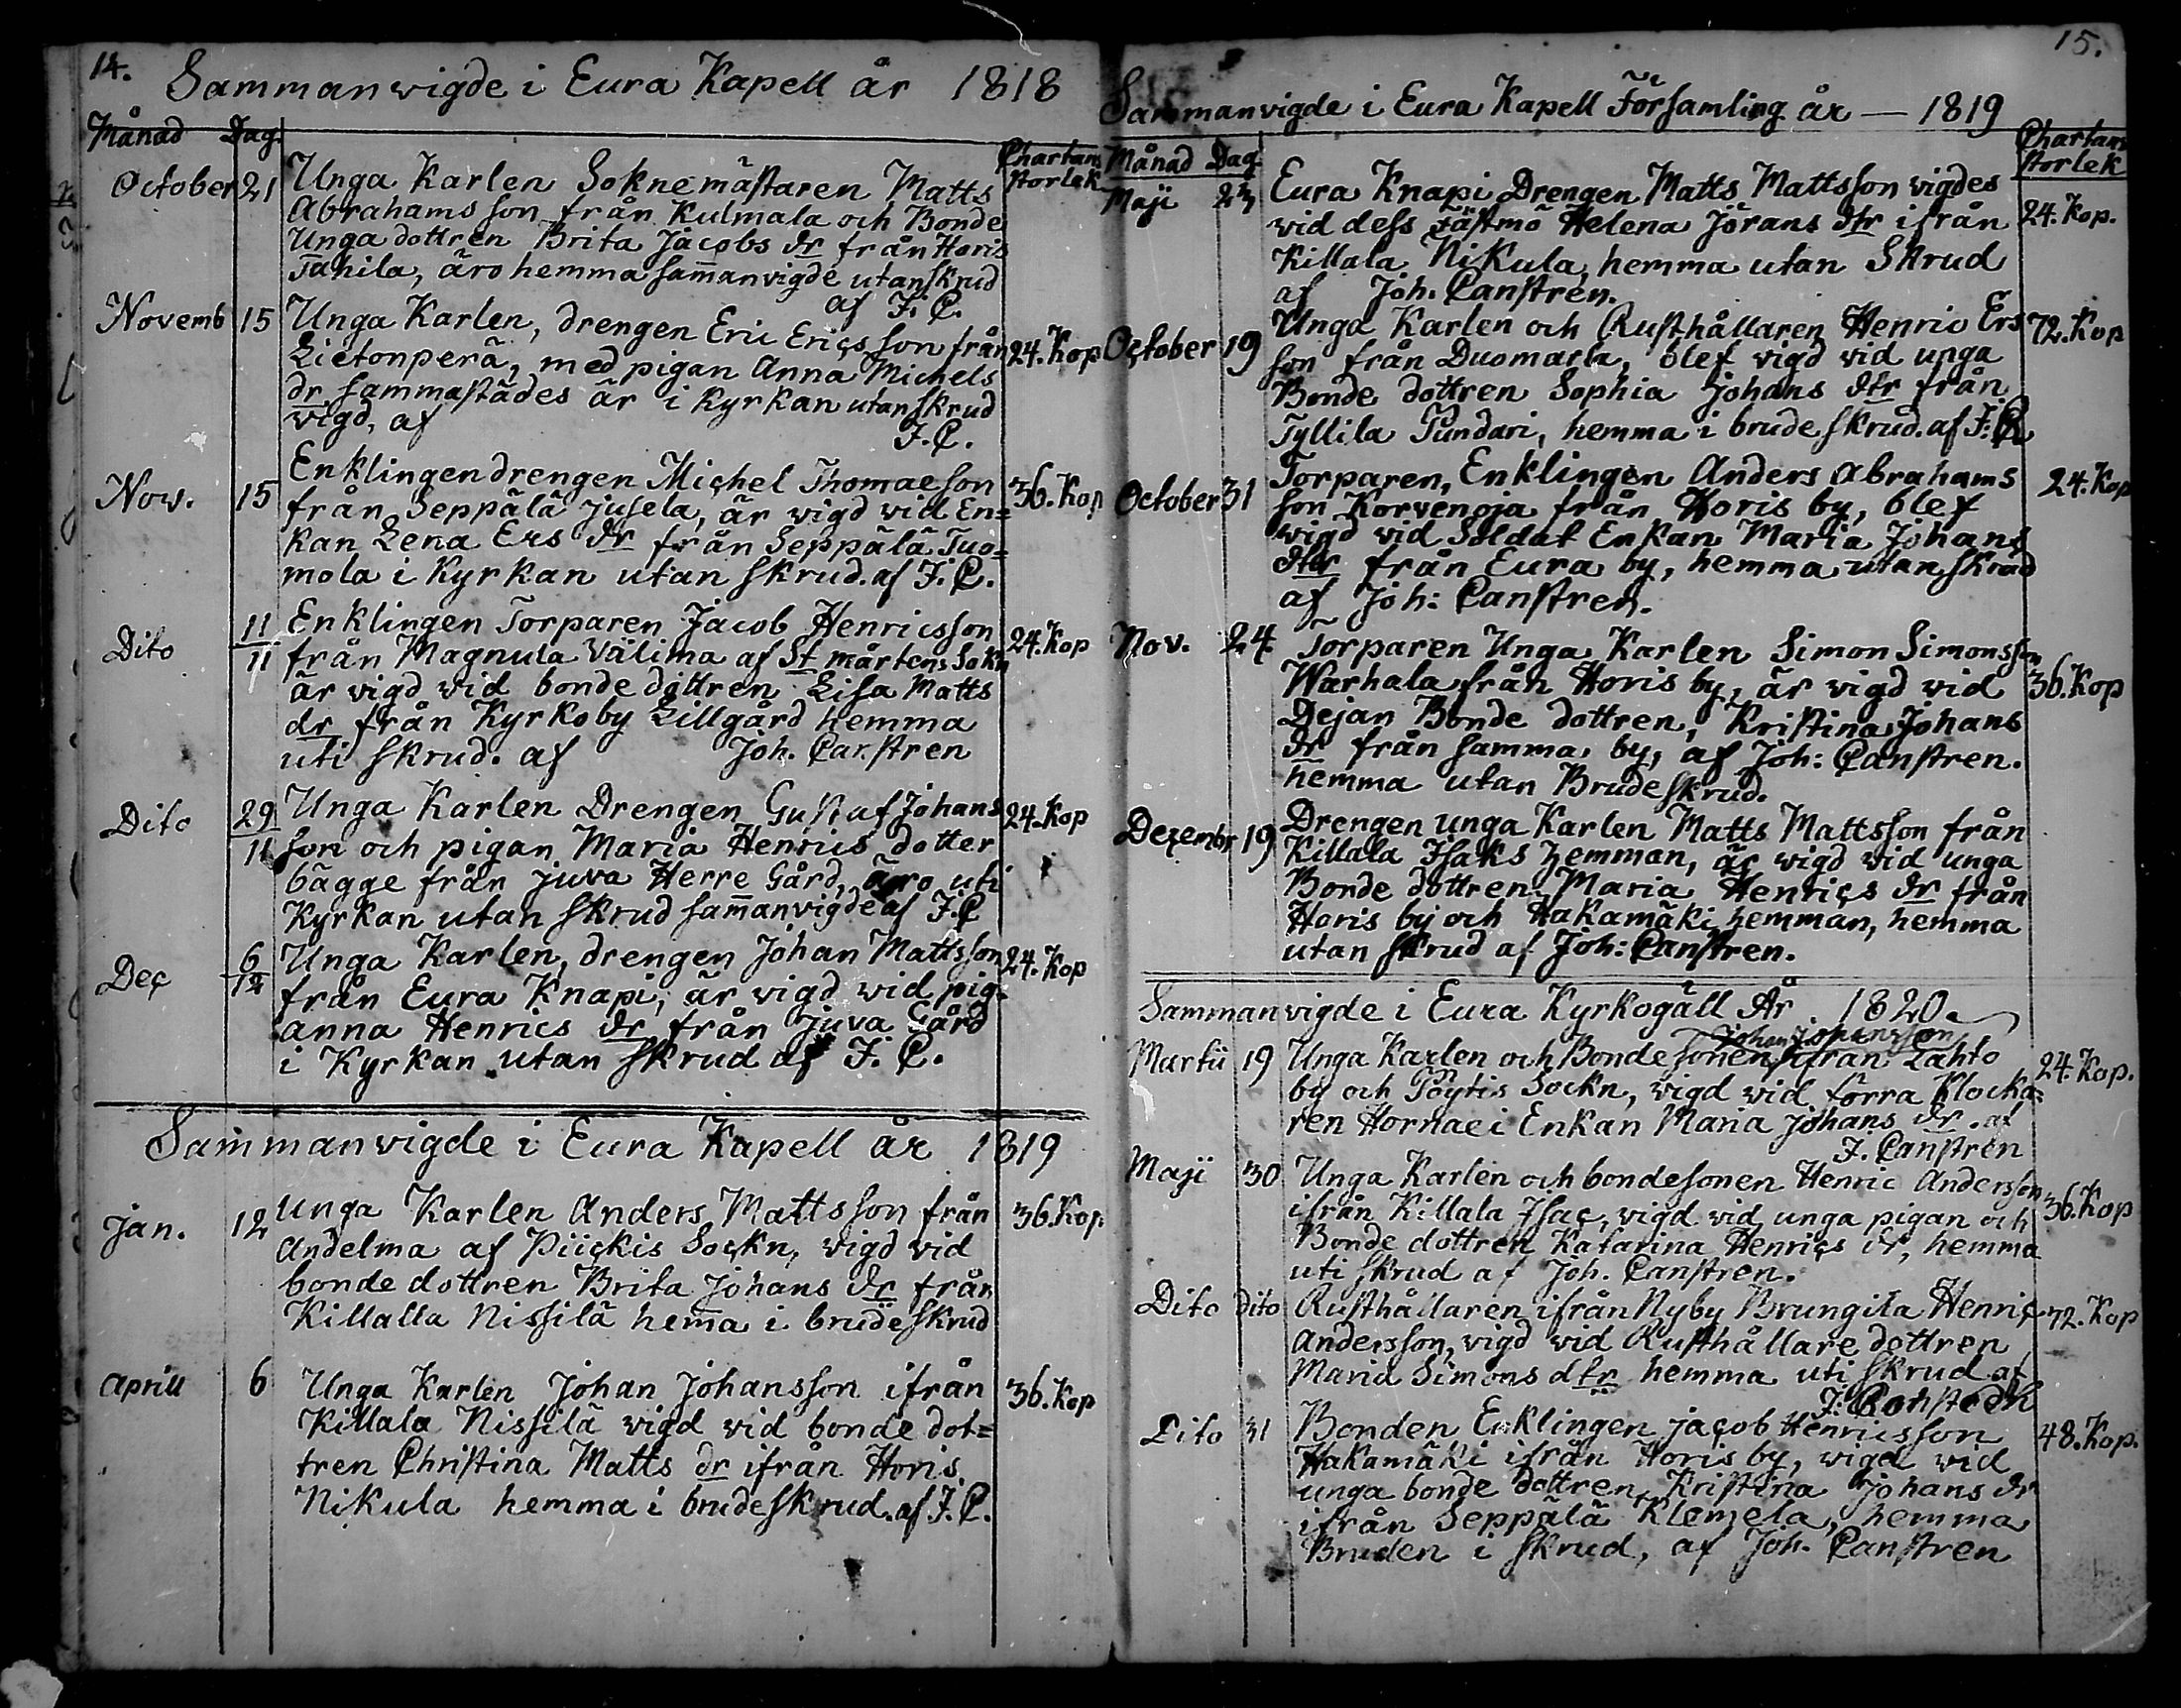 14.
Sammanvigde i Eura Kapell år 1818
Månad Dag
Chartans storlek
October 21 Unga Karlen Soknemästaren Matts
Abrahamsson från Kulmala och Bonde
Unga dottren Brita Jacobs dr från Horis
Tahila, äro hemma sam̄anvigde utan skrud
af J. C.
Novemb 15 Unga Karlen, drengen Eric Ericsson från
Lietonperä, med pigan Anna Michels 24. Kop
dr sammastädes är i Kyrkan utan skrud
vigd, af
J. C.
Nov. 15 Enklingen drengen Michel Thomaeson
från Seppälä Jusela, är vigd vid En= 36. Kop
kan Lena Ers dr från Seppälä Tuo=
mola i Kyrkan utan skrud. af J. C.
Dito 11/11 Enklingen Torparen Jacob Henricsson 24. Kop
från Magnula Välima af St mårtens Sokn
är vigd vid bonde dottren Lisa Matts
dr från Kyrkoby Lillgård hemma
uti skrud. af Joh. Canstren
Dito 29/11 Unga Karlen Drengen Gustaf Johans 24. Kop
son och pigan Maria Henrics dotter
bägge från Juva Herre Gård, äro uti
Kyrkan utan skrud sam̄anvigde af J. C
Dec 6/12 Unga Karlen, drengen Johan Mattsson 24. Kop
från Eura Knapi, är vigd vid pig.
anna Henrics dr från Juva Gård
i Kyrkan utan skrud af J. C.
Sammanvigde i Eura Kapell år 1819
Jan. 12 Unga Karlen Anders Mattsson från 36. Kop.
Andelma af Piickis Sockn, vigd vid
bonde dottren Brita Johans dr från
Killalla Nissilä hem̄a i brudeskrud
Aprill 6 Unga Karlen Johan Johansson ifrån 36. Kop
Killala Nissilä vigd vid bonde dot=
tren Christina Matts dr ifrån Horis
Nikula hemma i brudeskrud. af J. C.
15.
Sammanvigde i Eura Kapell Församling år — 1819
Månad Dag
Chartans storlek
Maji 23 Eura Knapi Drengen Matts Mattsson vigdes
vid dess Fästmö Helena Jörans dtr ifrån 24. Kop.
Killala Nikula, hemma utan Skrud
af Joh. Canstren.
October 19 Unga Karlen och Rusthållaren Henric Ers 72. Kop
son från Duomaela, blef vigd vid unga
Bonde dottren Sophia Johans dtr från
Tyllila Pundari, hemma i brude skrud. af J. C
October 31 Torparen, Enklingen Anders Abrahams 24. Kop
son Korvenoja från Horis by, blef
vigd vid Soldat Enkan Maria Johans
dtr från Eura by, hemma utan skrud
af Joh: Canstren.
Nov. 24. Torparen Unga Karlen Simon Simonsson
Warhala från Horis by, är vigd vid 36. Kop
Dejan Bonde dottren, Kristina Johans
dr från samma by, af Joh: Canstren.
hemma utan Brudeskrud.
Decembr 19 Drengen unga Karlen Matts Mattsson från
Killala Isaks hemman, är vigd vid unga
Bonde dottren Maria Henrics dr från
Horis by och Hakamäki hemman, hemma
utan skrud af Joh: Canstren.
Sammanvigde i Eura Kyrkogäll År 1820.
Johan Johansson
Martii 19 Unga Karlen och Bondesonen ifrån Lahto 24. Kop.
by och Pöytis Sockn, vigd vid förra Klocka=
ren Hornaei Enkan Maria Johans dr. af
J. Canstren
Maji 30 Unga Karlen och bondesonen Henric Andersson
ifrån Killala Isac, vigd vid unga pigan och 36. Kop
Bonde dottren Katarina Henrics dr, hemma
uti skrud af Joh. Canstren.
Dito dito Rusthållaren ifrån Nyby Brungila Henric 72. Kop
Andersson, vigd vid Rusthållare dottren
Maria Simons dtr hemma uti skrud af
J. Canstren
Dito 31 Bonden Enklingen Jacob Henricsson 48. Kop.
Hakamäki ifrån Horis by, vigd vid
unga bonde dottren Kristina Johans dr
ifrån Seppälä Klemela, hemma
Bruden i skrud, af Joh. Canstren